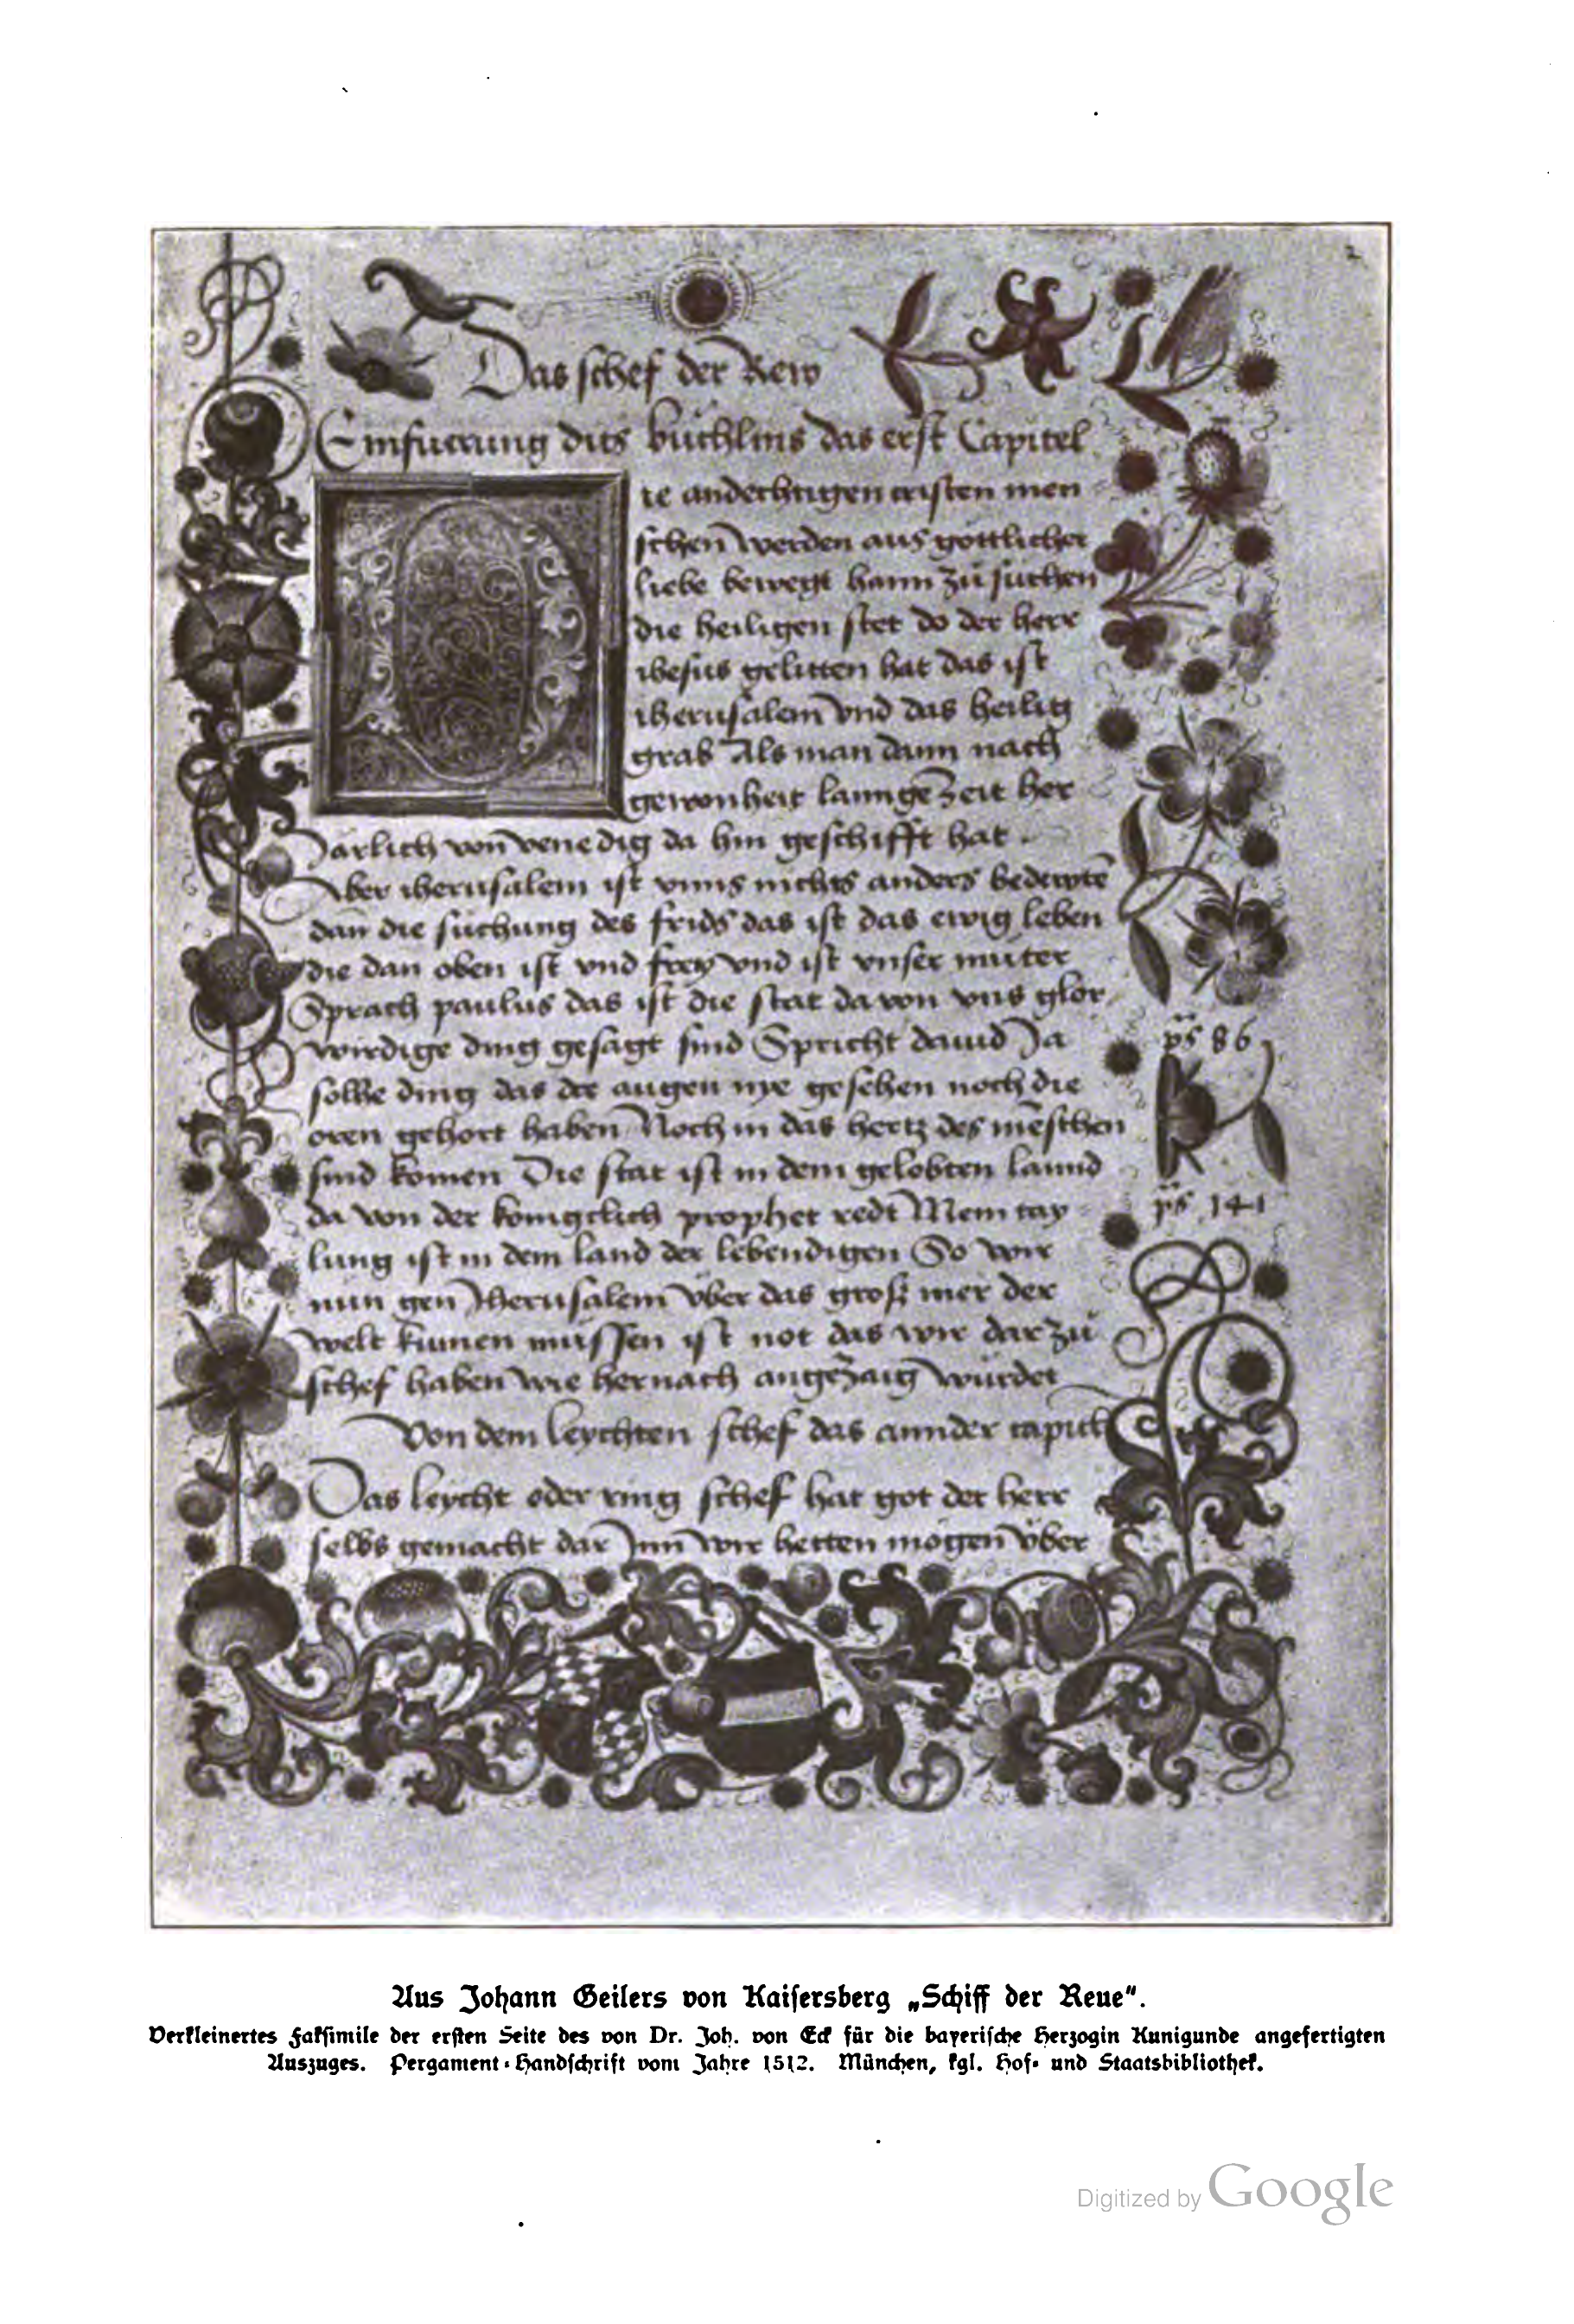 2
Das schef der Rew
Einfuerung dits buchlins das erst Capitel
Die andechtigen cristen men
schen werden aus gottlicher
liebe bewegt haim zu suchen
die heiligen stet do der herr
ihesus gelitten hat das ist
iherusalem vnd das heilig
grab Als man dann nach
gewonheit lannge zeit her
Järlich von venedig da hin geschifft hat
Aber iherusalem ist vnns nichts anders bedewtē
dān die suchung des frids das ist das ewig leben
die dan oben ist vnd frey vnd ist vnser muter
Sprach paulus das ist die stat da von vns glor
wirdige ding gesagt sind Spricht dauid Ja
ps 86
solhe ding das die augen nye gesehen noch die
oren gehort haben Noch in das hertz des mēschen
sind komen Die stat ist in dem gelobten lannd
da von der konigclich prophet redt Mein tay
ps 141
lung ist in dem land der lebendigen So wir
nun gen Jherusalem vber das groß mer der
welt kumen mussen ist not das wir dar zu
schef haben wie hernach angezaig wurdet
Von dem leychten schef das annder capitl
Das leycht oder ring schef hat got der herr
selbs gemacht dar Jnn wir hetten mogen vber
Aus Johann Geilers von Kaisersberg „Schiff der Reue“.
Verkleinertes Faksimile der ersten Seite des von Dr. Joh. von Eck für die bayerische Herzogin Kunigunde angefertigten
Auszuges. Pergament-Handschrift vom Jahre 1512. München, kgl. Hof- und Staatsbibliothek.
Digitized by Google